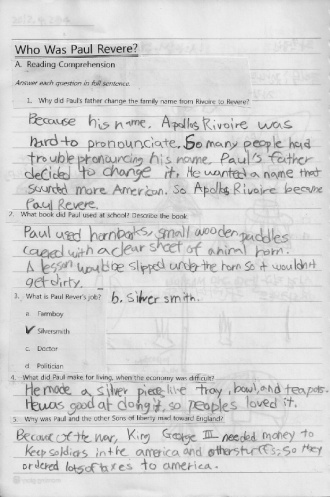 Who Was Paul Revere?
A. Reading Comprehension
Answer each question in full sentence.
1. Why did Paul's father change the family name from Rivoire to Revere?
Because his name. Apollos Rivoire was
hard to pronounciate. So many people had
trouble pronouncing his name. Paul's father
decided to change it. He wanted a name that
sounded more American. So Apollos Rivoire became
Paul Revere.
2. What book did Paul used at school? Describe the book
Paul used hornbooks, small wooden puddles
covered with a clear sheet of animal horn.
A lesson would be slipped under the horn so it wouldn't
get dirty.
3. What is Paul Rever's job? b. silver smith.
a. Farmboy
b. Silversmith
c. Doctor
d. Politician
4. What did Paul make for living, when the economy was difficult?
He made a silver piece like tray, bowl, and teapots.
He was good at doing it, so peoples loved it.
5. Why was Paul and the other Sons of liberty mad toward England?
Because of the war, King George III needed money to
keep soldiers in the america and other stuffs; So they
ordered lots of taxes to america.